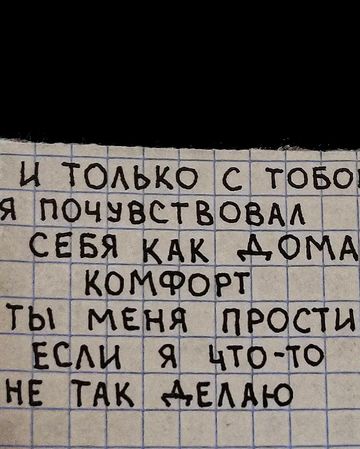 И ТОЛЬКО С ТОБО
Я ПОЧУВСТВОВАЛ
СЕБЯ КАК ДОМА
КОМФОРТ
ТЫ МЕНЯ ПРОСТИ
ЕСЛИ Я ЧТО-ТО
НЕ ТАК ДЕЛАЮ